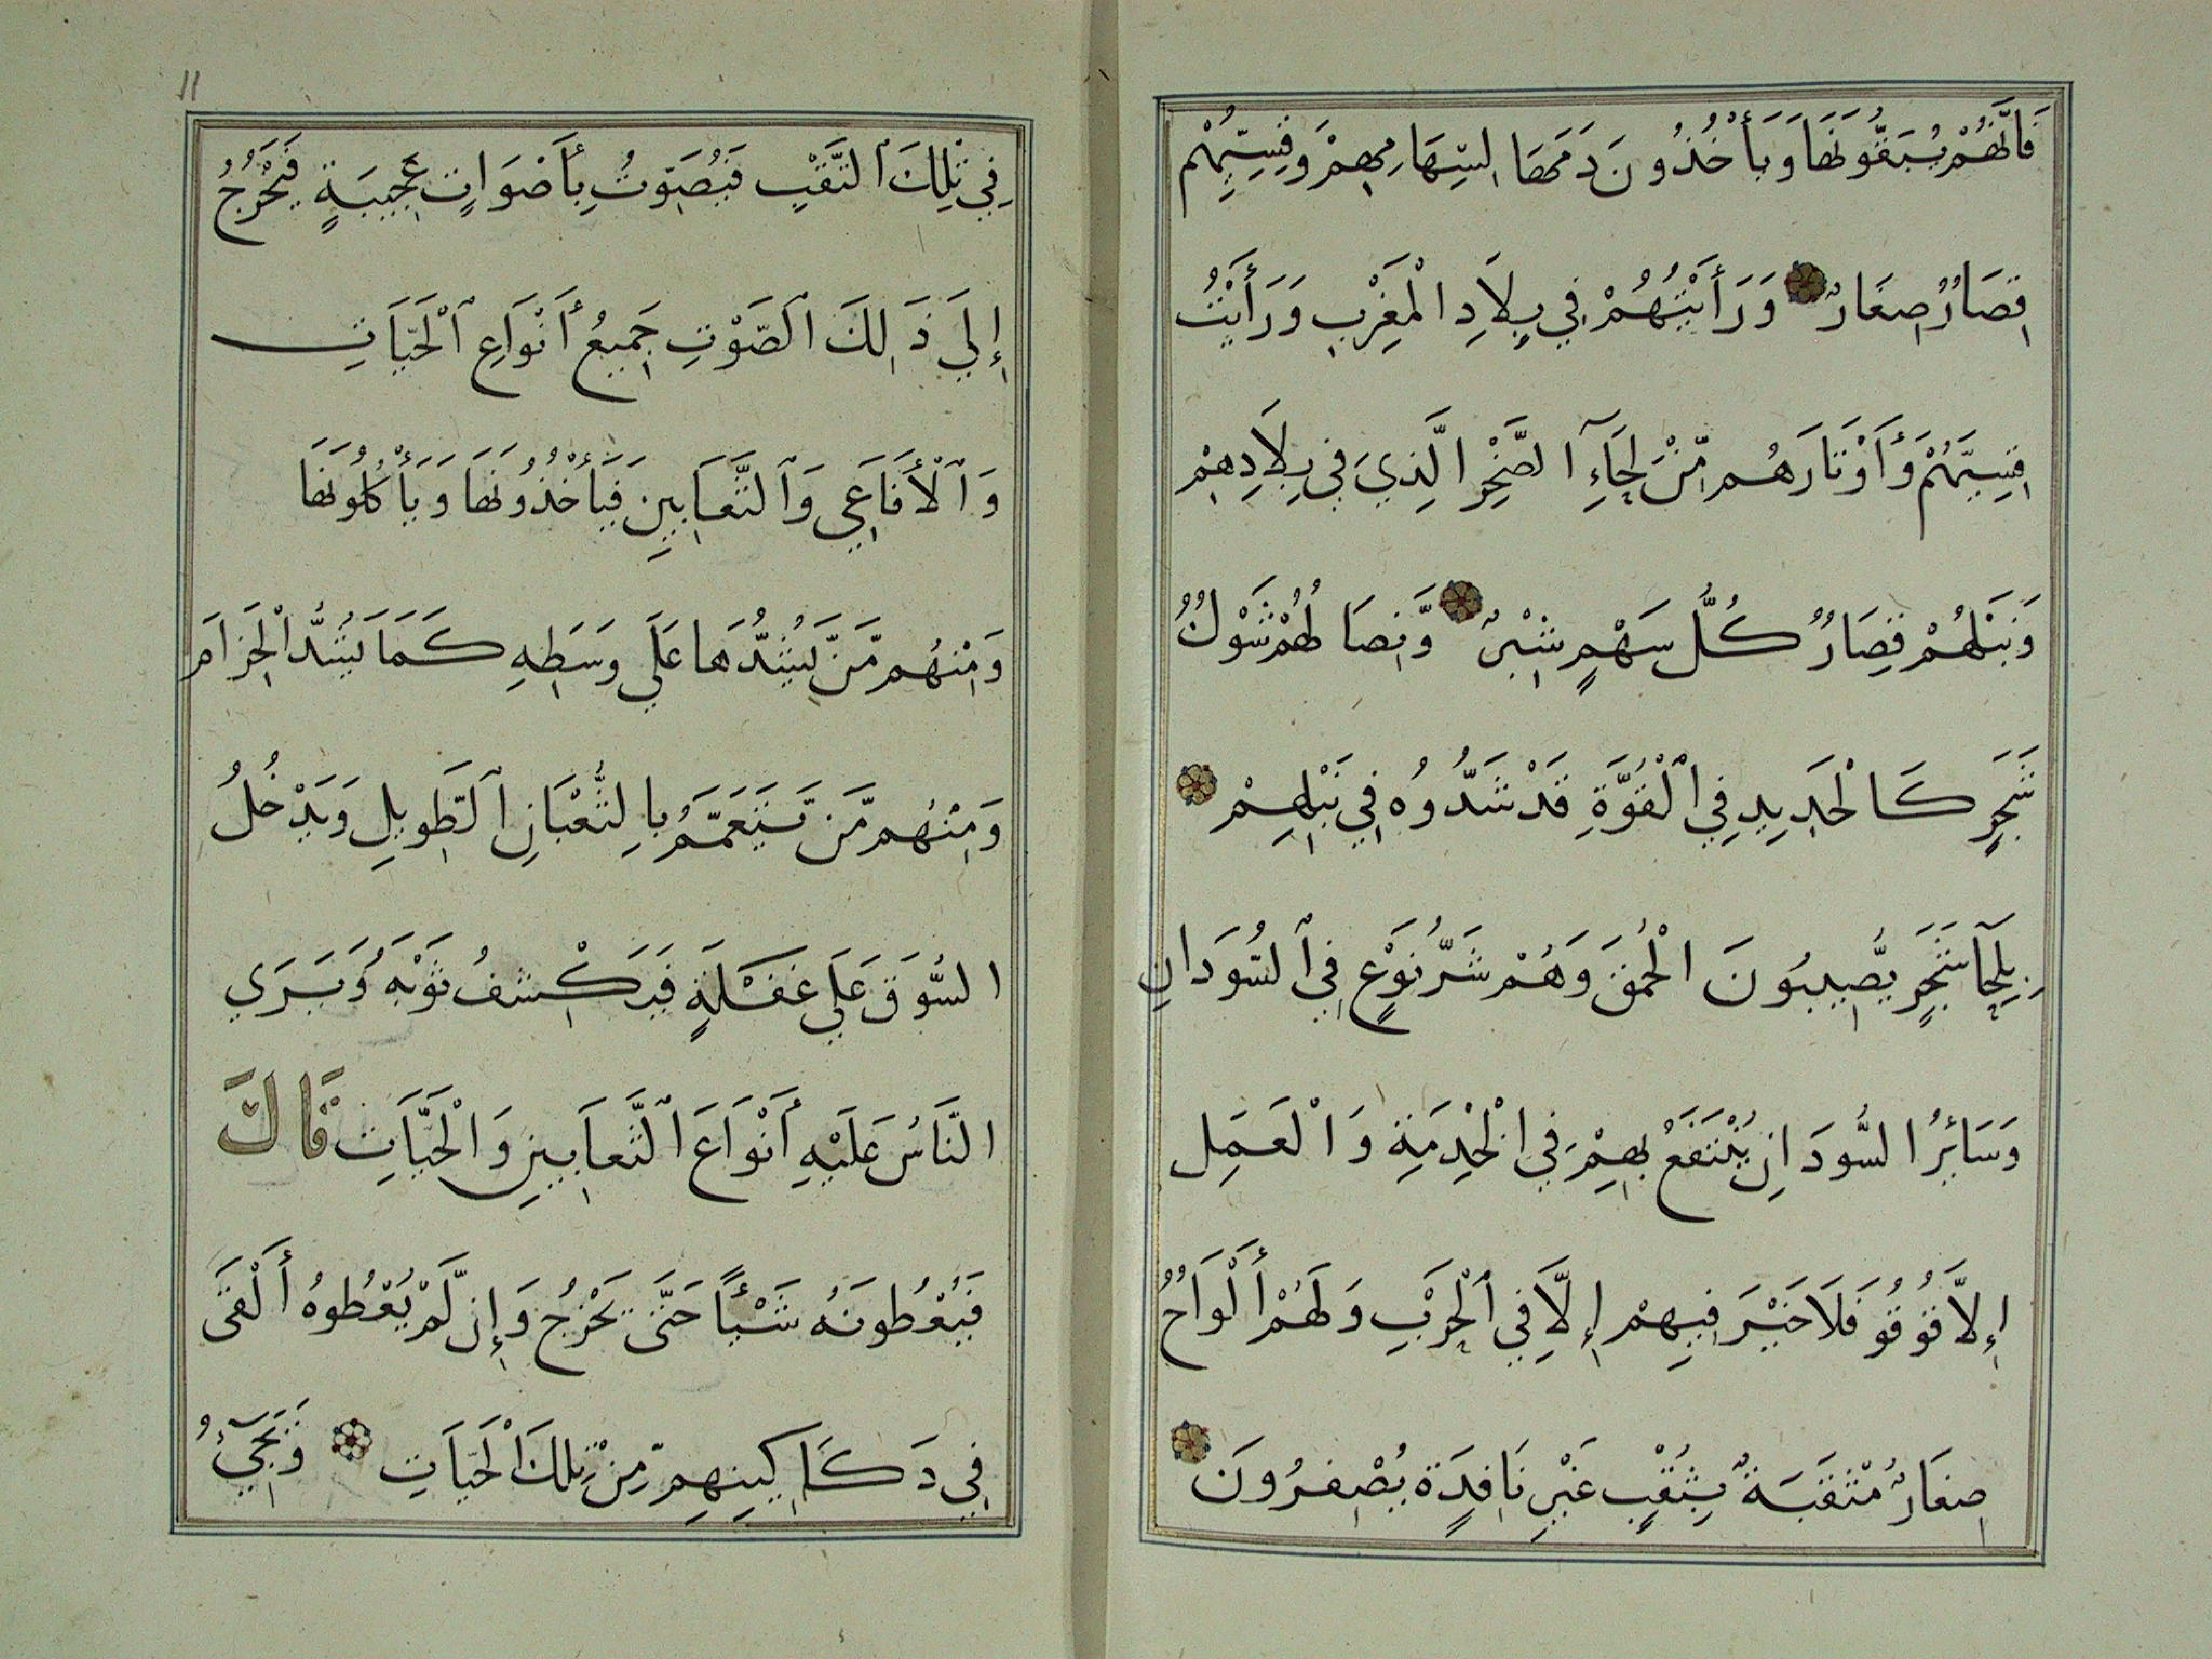 فَاِنَّهُمْ يُسَقُّونَهَا وَيَأْخُذُونَ دَمَهَا لِسِهَامِهِمْ وَقِسِيُّهُم
قِصَارٌ صِغَارٌ وَرَأَيْتُهُمْ فِي بِلَادِ الْمَغْرِبِ وَرَأَيْتُ
قِسِيَّهُمْ وَأَوْتَارَهُم مِّنْ لِحَآءِ الشَّجَرِ الَّذِي فِي بِلَادِهِمْ
وَنَبْلُهُمْ قِصَارٌ كُلُّ سَهْمٍ شِبْرٌ وَّنِصَالُهُمْ شَوْكُ
شَجَرٍ كَالْحَدِيدِ فِي ٱلْقُوَّةِ قَدْ شَدُّوهُ فِي نَبْلِهِمْ
بِلِحَآ شَجَرٍ يُّصِيبُونَ الْحُدُقَ وَهُمْ شَرُّ نَوْعٍ فِي ٱلسُّودَانِ
وَسَائِرُ السُّودَانِ يُنْتَفَعُ بِهِمْ فِي الْخِدْمَةِ وَالْعَمَلِ
إِلَّا قُوقُو فَلَا خَيْرَ فِيهِمْ إِلَّا فِي ٱلْحَرْبِ وَلَهُمْ أَلْوَاحٌ
صِغَارٌ مُثَقَّبَةٌ بِثُقْبٍ غَيْرِ نَافِذَةٍ يُصْفِرُونَ
11
فِي تِلْكَ ٱلثُّقْبِ فَيُصَوِّتُ بِأَصْوَاتٍ عَجِيبَةٍ فَيَخْرُجُ
إِلَي ذَالِكَ ٱلصَّوْتِ جَمِيعُ أَنْوَاعِ ٱلْحَيَّاتِ
وَٱلْأَفَاعِي وَٱلثَّعَابِينِ فَيَأْخُذُونَهَا وَيَأْكُلُونَهَا
وَمِنْهُم مَّن يَّشُدُّهَا عَلَي وَسَطِهِ كَمَا يَشُدُّ الْحِزَامَ
وَمِنْهُم مَّن يَتَعَمَّمُ بِالثُّعْبَانِ ٱلطَّوِيلِ وَيَدْخُلُ
السُّوقَ عَلَي غَفْلَةٍ فَيَكْشِفُ ثَوْبَهُ وَيَرَي
النَّاسُ عَلَيْهِ أَنْوَاعَ ٱلثَّعَابِينِ وَالْحَيَّاتِ قَالَ
فَيُعْطُونَهُ شَيْئًا حَتَّى يَخْرُجُ وَإِن لَّمْ يُعْطُوهُ أَلْقَى
فِي دَكَاكِينِهِم مِّنْ تِلْكَ الْحَيَاتِ وَيَجِيٓءُ